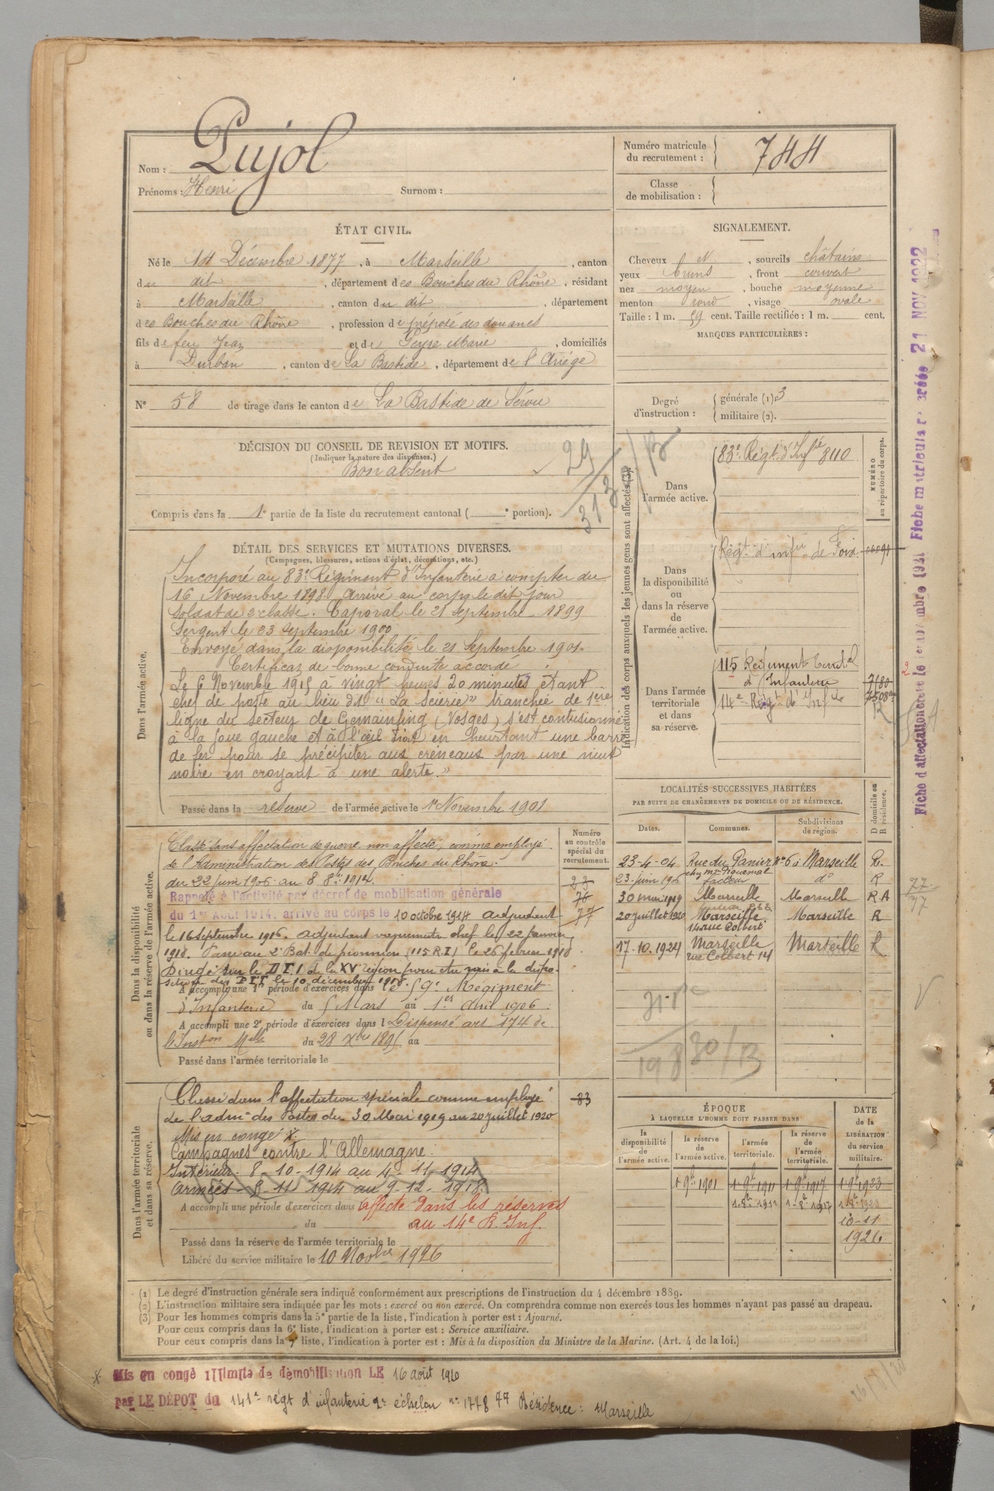 Nom : Pujol
Prénoms : Henri Surnom :
Numéro matricule du recrutement : 744
Classe de mobilisation :
ÉTAT CIVIL.
Né le 1er Décembre 1877, à Marseille, canton
du dit, département des Bouches du Rhône, résidant
à Marseille, canton du dit, département
des Bouches du Rhône, profession de préposé des douanes
fils de feu Jean et de Marie, domiciliés
à Durban, canton de La Bastide, département de l'Ariège
N° 58 de tirage dans le canton de La Bastide de Sérou
SIGNALEMENT.
Cheveux N, sourcils châtains
yeux bruns, front couvert
nez moyen, bouche moyenne
menton rond, visage ovale
Taille : 1 m. 59 cent. Taille rectifiée : 1 m. cent.
MARQUES PARTICULIÈRES :
Degré d'instruction : générale (1) 3
militaire (2).
DÉCISION DU CONSEIL DE REVISION ET MOTIFS.
(Indiquer la nature des dispenses.)
Bon absent
29
313
Compris dans la 1e partie de la liste du recrutement cantonal ( e portion).
DÉTAIL DES SERVICES ET MUTATIONS DIVERSES.
(Campagnes, blessures, actions d'éclat, décorations, etc.)
Dans l'armée active.
Incorporé au 83e Régiment d'Infanterie à compter du
16 Novembre 1898. Arrivé au corps le dit jour
Soldat de 2e classe. Caporal le 21 Septembre 1899
Sergent le 23 Septembre 1900
Envoyé dans la disponibilité le 21 Septembre 1901.
Certificat de bonne conduite accordé.
Le 6 Novembre 1915 à vingt heures 20 minutes étant
chef de poste au lieu dit "La Scierie" tranchée de 1ere
ligne du secteur de Gemainfing (Vosges) s'est contusionné
à la joue gauche et à l'œil droit en heurtant une barre
de fer pour se précipiter aux créneaux par une nuit
noire en croyant à une alerte."
Passé dans la réserve de l'armée active le 1er Novembre 1901
Indication des corps auxquels les jeunes gens sont affectés.
NUMÉRO au répertoire du corps.
Dans l'armée active. 83e Régt d'Infie 8110
Dans la disponibilité ou dans la réserve de l'armée active. Régt d'infie de Foix
Dans l'armée territoriale et dans sa réserve. 115 Régiment territal d'Infanterie
14e Régt d'Infie
LOCALITÉS SUCCESSIVES HABITÉES
PAR SUITE DE CHANGEMENTS DE DOMICILE OU DE RÉSIDENCE.
Dates. Communes. Subdivisions de région. D domicile ou R résidence.
23-4-04 Rue du Panier N° 6 à Marseille R.
23 juin 190 facteur do R
30 mai 1919 Marseille Marseille R A
20 juillet 1920 Marseille 14 rue Colbert Marseille R
17.10.1924 Marseille rue Colbert 14 Marseille R
Dans la disponibilité ou dans la réserve de l'armée active.
Numéro au contrôle spécial du recrutement.
Classé sans affectation de guerre, non affecté, comme employé
de l'Administration des Postes des Bouches du Rhône.
du 22 juin 1906 au 8 8bre 1914.
Rappelé à l'activité par décret de mobilisation générale
du 1er Août 1914, arrivé au corps le 10 octobre 1914 adjudant
le 16 septembre 1916. adjudant vaguemestre chef le 22 janvier
1918. Passé au 2e Bat. de pionniers (115 R.I.) le 26 février 1918
Dirigé sur le D.T.I. de la XVe région
le 10 décembre 1918.
A accompli une 1re période d'exercices dans le 59e Régiment
d'Infanterie du 5 Mars au 1er Avril 1906
A accompli une 2e période d'exercices dans l Dispensé art 174 de
l'Inston Melle du 28 Xbre 1895 au
Passé dans l'armée territoriale le
Dans l'armée territoriale et dans sa réserve.
Classé dans l'affectation spéciale comme employé
de l'admon des Postes du 30 Mai 1919 au 20 juillet 1920
83
Mis en congé *
Campagnes contre l'Allemagne.
Intérieur. 8-10-1914 au 4-11-1914
Armées
A accompli une période d'exercices dans affecté dans les réserves
du au 14e R. Inf
Passé dans la réserve de l'armée territoriale le
Libéré du service militaire le 10 Novbre 1926
ÉPOQUE
À LAQUELLE L'HOMME DOIT PASSER DANS
la disponibilité de l'armée active. la réserve de l'armée active. l'armée territoriale. la réserve de l'armée territoriale.
DATE de la LIBÉRATION du service militaire.
1-9e 1901 1-9e 1911 1-9e 1917 1-9e 1923
10-11
1926
(1) Le degré d'instruction générale sera indiqué conformément aux prescriptions de l'instruction du 4 décembre 1889.
(2) L'instruction militaire sera indiquée par les mots : exercé ou non exercé. On comprendra comme non exercés tous les hommes n'ayant pas passé au drapeau.
(3) Pour les hommes compris dans la 5e partie de la liste, l'indication à porter est : Ajourné.
Pour ceux compris dans la 6e liste, l'indication à porter est : Service auxiliaire.
Pour ceux compris dans la 7e liste, l'indication à porter est : Mis à la disposition du Ministre de la Marine. (Art. 4 de la loi.)
* Mis en congé illimité de démobilisation LE 16 août 1920
par LE DÉPOT du 141e régt d'infanterie 2e échelon n° 1778 Résidence : Marseille
21 NOV 1922